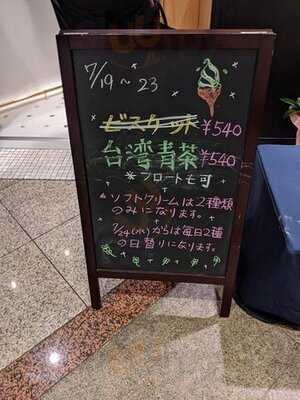 7/19～23
ビスケット ¥540
台湾青茶 ¥540
※フロートも可
ソフトクリームは2種類
のみになります。
7/24(水)からは毎日2種
の日替りになります。